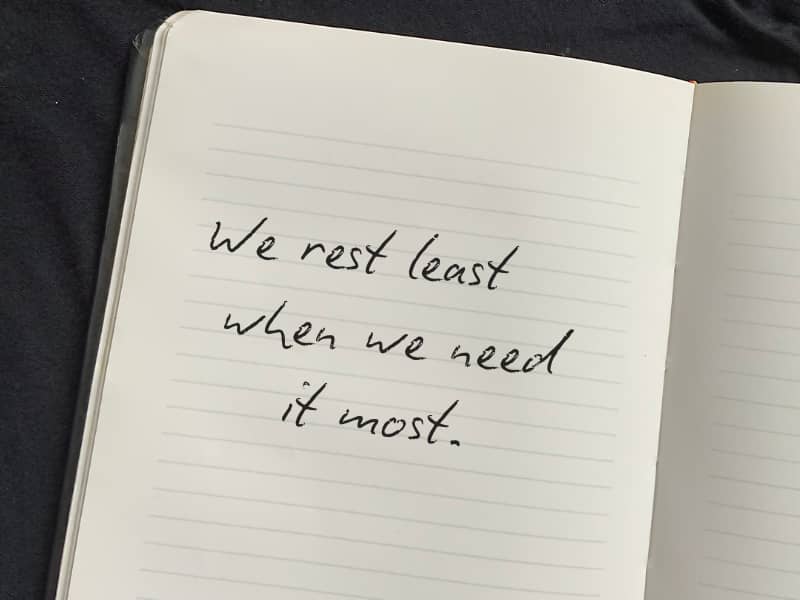 We rest least
when we need
it most.